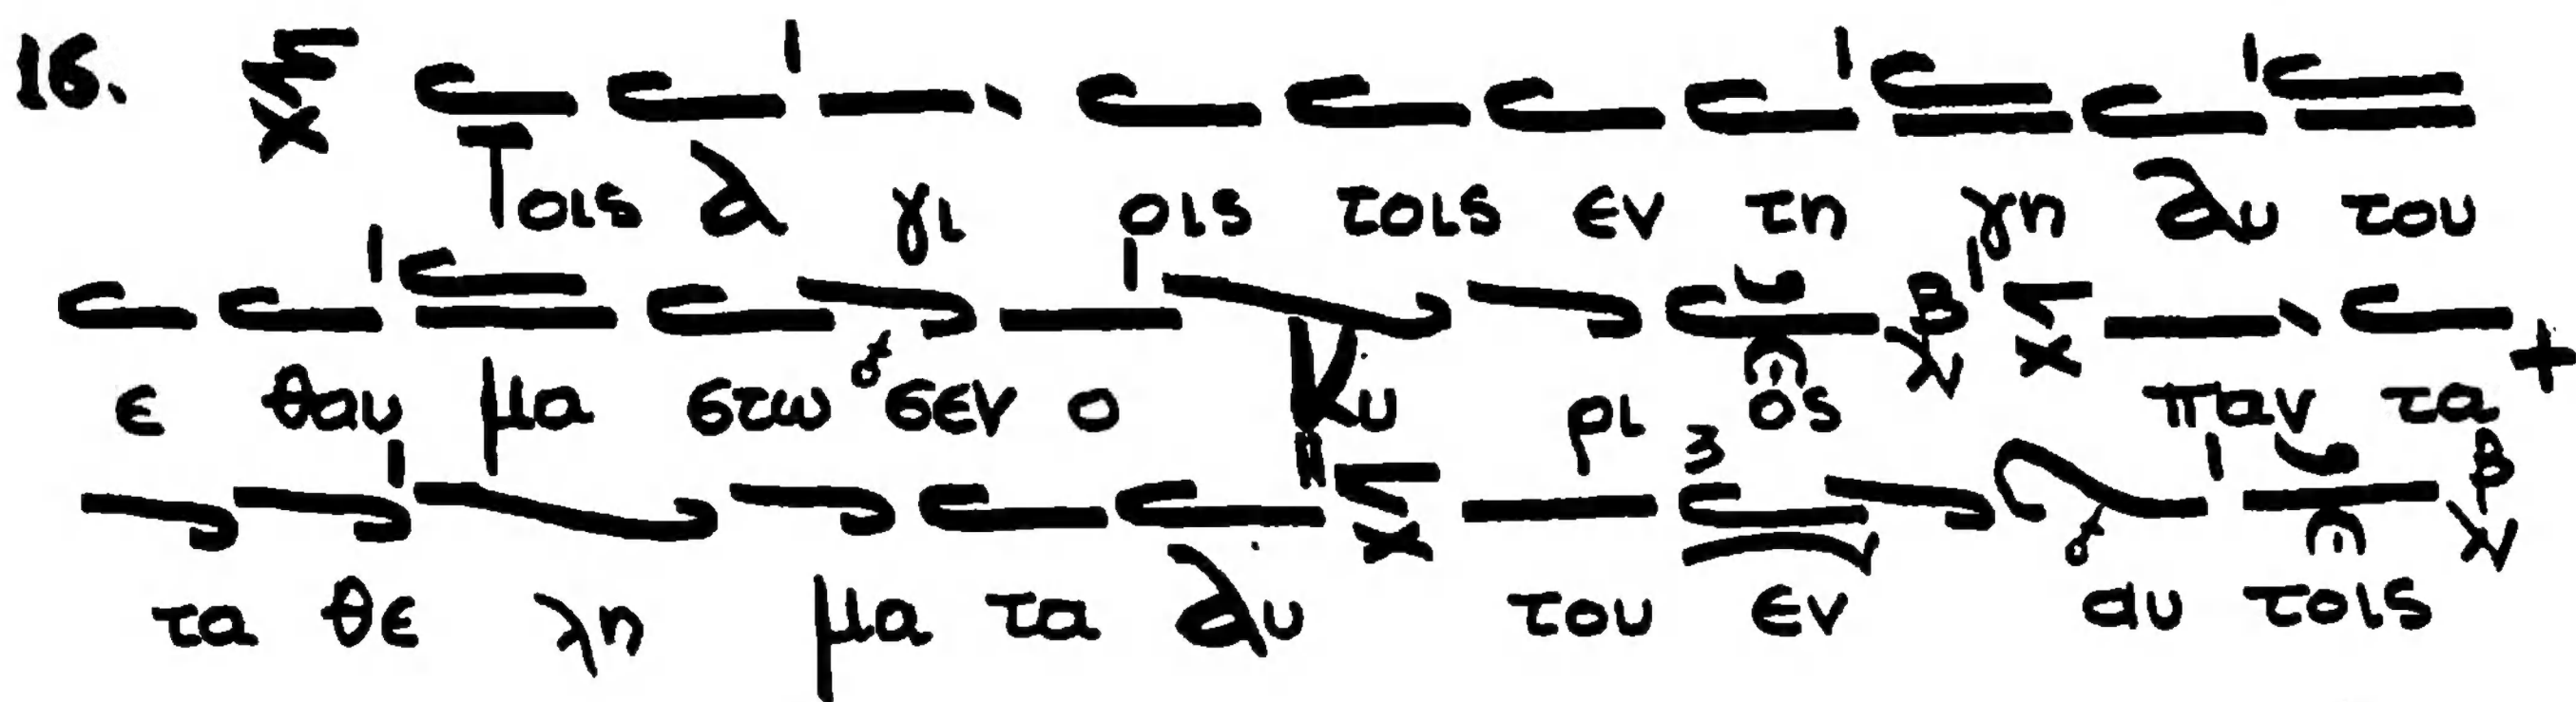 16. Τοις α γι οις τοις εν τη γη αυ του
ε θαυ μα στω σεν ο Κυ ρι ος παν τα +
τα θε λη μα τα αυ του εν αυ τοις